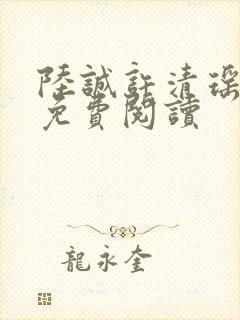 陸誠許清瑶
免費閱讀
龍永奎